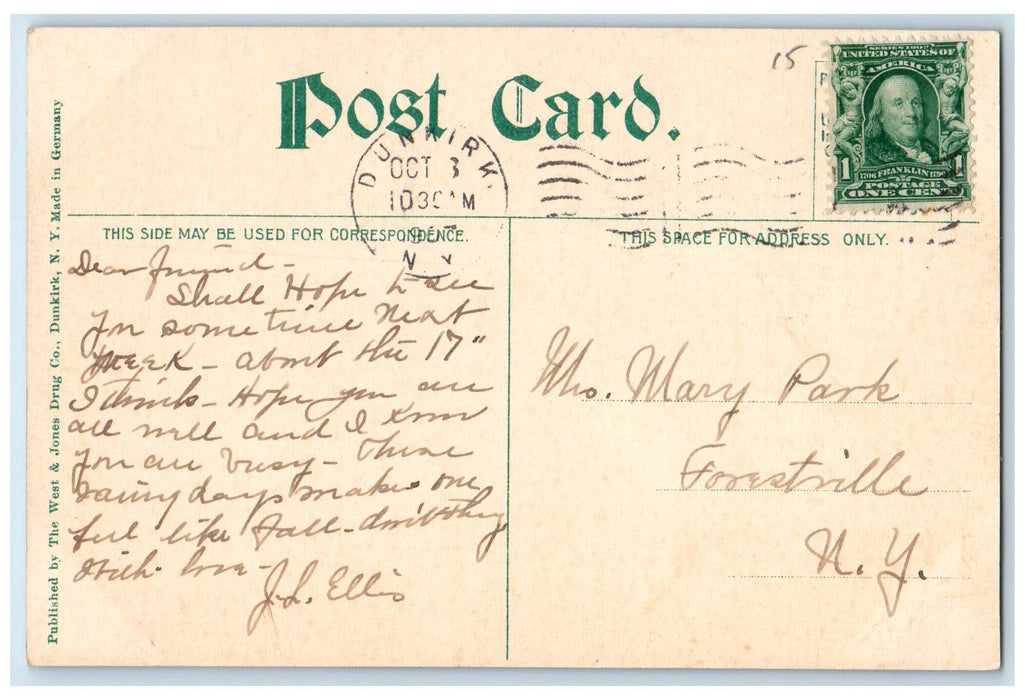 15
SERIES 1902
UNITED STATES OF
AMERICA
1 FRANKLIN 1
POSTAGE
ONE CENT
Post Card.
DUNKIRK.
OCT 8
1030 AM
N.Y.
THIS SIDE MAY BE USED FOR CORRESPONDENCE.
THIS SPACE FOR ADDRESS ONLY.
Published by The West & Jones Drug Co., Dunkirk, N. Y. Made in Germany
Dear friend -
Shall Hope to see
you some time next
week - about the 17"
I think - Hope you are
all well and I know
you are busy - These
rainy days makes one
feel like Fall - don't they
With love -
J.L. Ellis
Mrs. Mary Park
Forestville
N. Y.